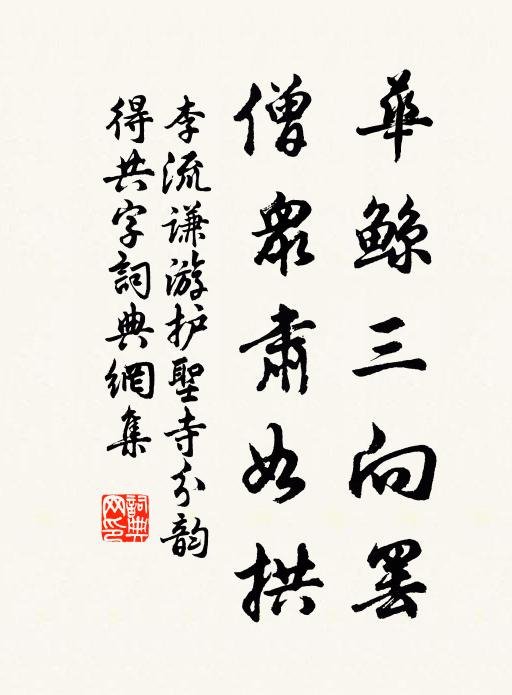 華鯨三向罢
僧眾肅如拱
李流謙游护聖寺分韵
得共字詞典網集
詞典網印